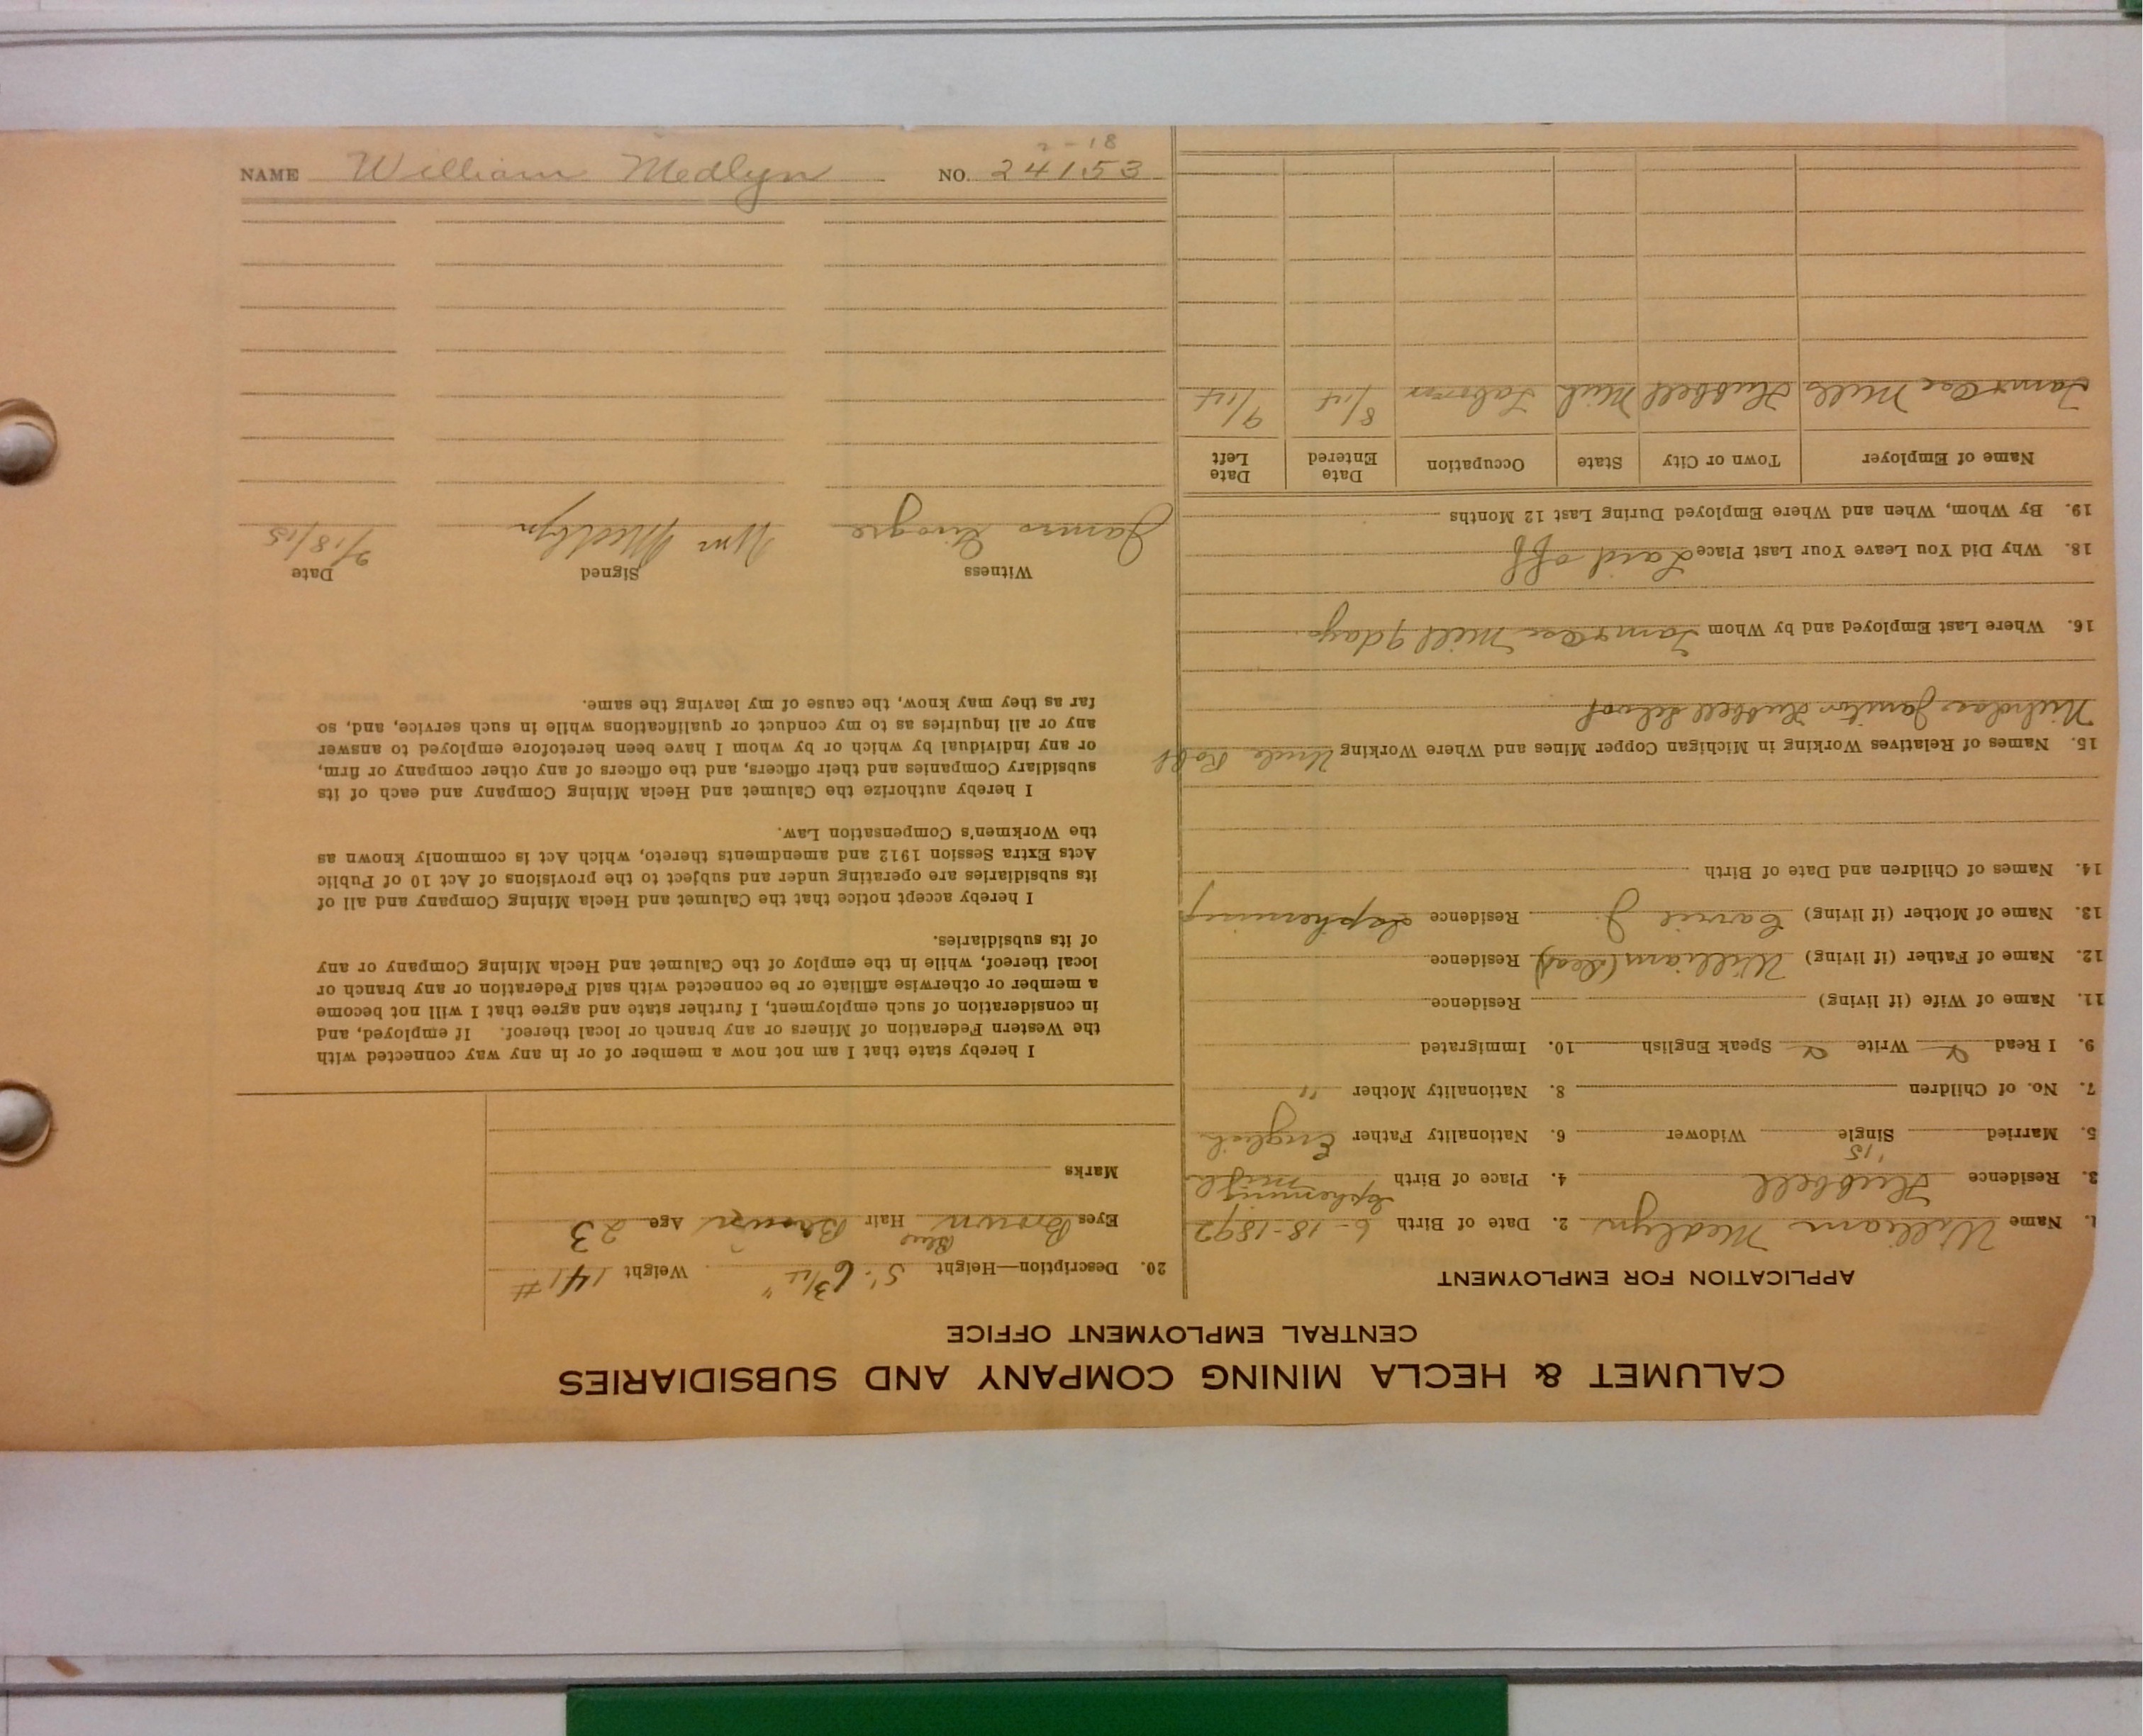 CALUMET & HECLA MINING COMPANY AND SUBSIDIARIES
CENTRAL EMPLOYMENT OFFICE
APPLICATION FOR EMPLOYMENT
1. Name William Medlyn 2. Date of Birth 6-18-1892
3. Residence Hubbell 4. Place of Birth Ishpeming Mich
'15
5. Married Single Widower 6. Nationality Father English
7. No. of Children 8. Nationality Mother "
9. I Read Write Speak English 10. Immigrated
11. Name of Wife (if living) Residence
12. Name of Father (if living) William (dead) Residence
13. Name of Mother (if living) Carrie J. Residence Ishpeming
14. Names of Children and Date of Birth
15. Names of Relatives Working in Michigan Copper Mines and Where Working Uncle Robt
Nicholas Janitor Hubbell School
16. Where Last Employed and by Whom Tam & Osc Mill 9 days
18. Why Did You Leave Your Last Place Laid off
19. By Whom, When and Where Employed During Last 12 Months
Name of Employer Town or City State Occupation Date Entered Date Left
Tam & Osc Mill Hubbell Mich Laborer 8/14 9/14
20. Description—Height 5' 6 3/4" Weight 141 #
Blue
Eyes Brown Hair Brown Age 23
Marks
I hereby state that I am not now a member of or in any way connected with
the Western Federation of Miners or any branch or local thereof. If employed, and
in consideration of such employment, I further state and agree that I will not become
a member or otherwise affiliate or be connected with said Federation or any branch or
local thereof, while in the employ of the Calumet and Hecla Mining Company or any
of its subsidiaries.
I hereby accept notice that the Calumet and Hecla Mining Company and all of
its subsidiaries are operating under and subject to the provisions of Act 10 of Public
Acts Extra Session 1912 and amendments thereto, which Act is commonly known as
the Workmen's Compensation Law.
I hereby authorize the Calumet and Hecla Mining Company and each of its
subsidiary Companies and their officers, and the officers of any other company or firm,
or any individual by which or by whom I have been heretofore employed to answer
any or all inquiries as to my conduct or qualifications while in such service, and, so
far as they may know, the cause of my leaving the same.
Witness Signed Date
James Wm Medlyn 2/18/15
2-18
NAME William Medlyn NO. 24153